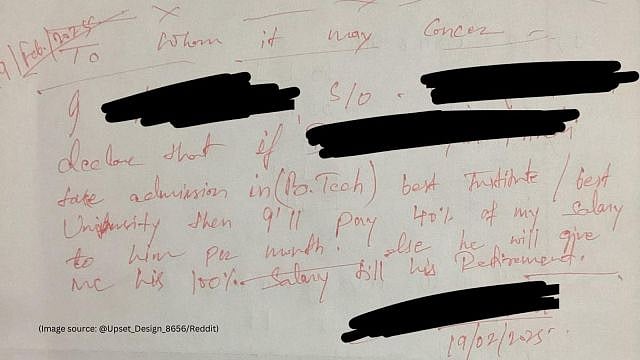 9/Feb./2025
To Whom it may Concer -
I S/O -
declare that if
take admission in (B.Tech) best Institute / best
University then I'll pay 40% of my Salary
to him per month. else he will give
me his 100% Salary till his Retirement.
19/02/2025.
(Image source: @Upset_Design_8656/Reddit)